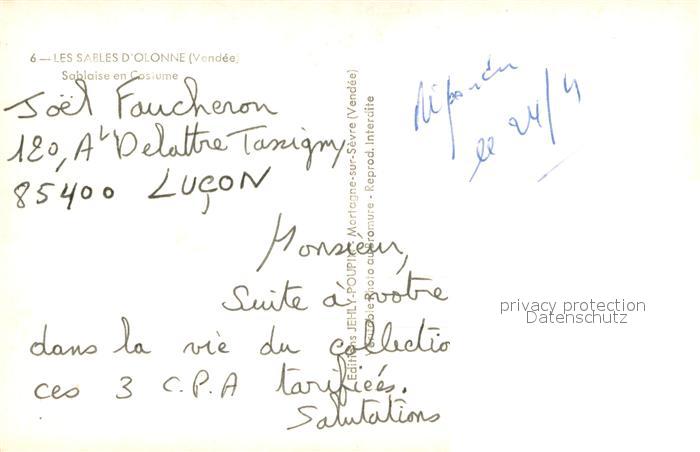 6 — LES SABLES D'OLONNE (Vendée)
Sablaise en Costume
Joël Faucheron
120, A Delattre Tassigny
85400 LUÇON
Monsieur,
Suite à votre
dans la vie du collectio
ces 3 C.P.A tarifiées.
Salutations
Editions JEHLY-POUPIN - Mortagne-sur-Sèvre (Vendée)
Véritable Photo au Bromure - Reprod. Interdite
le 24/4
privacy protection
Datenschutz